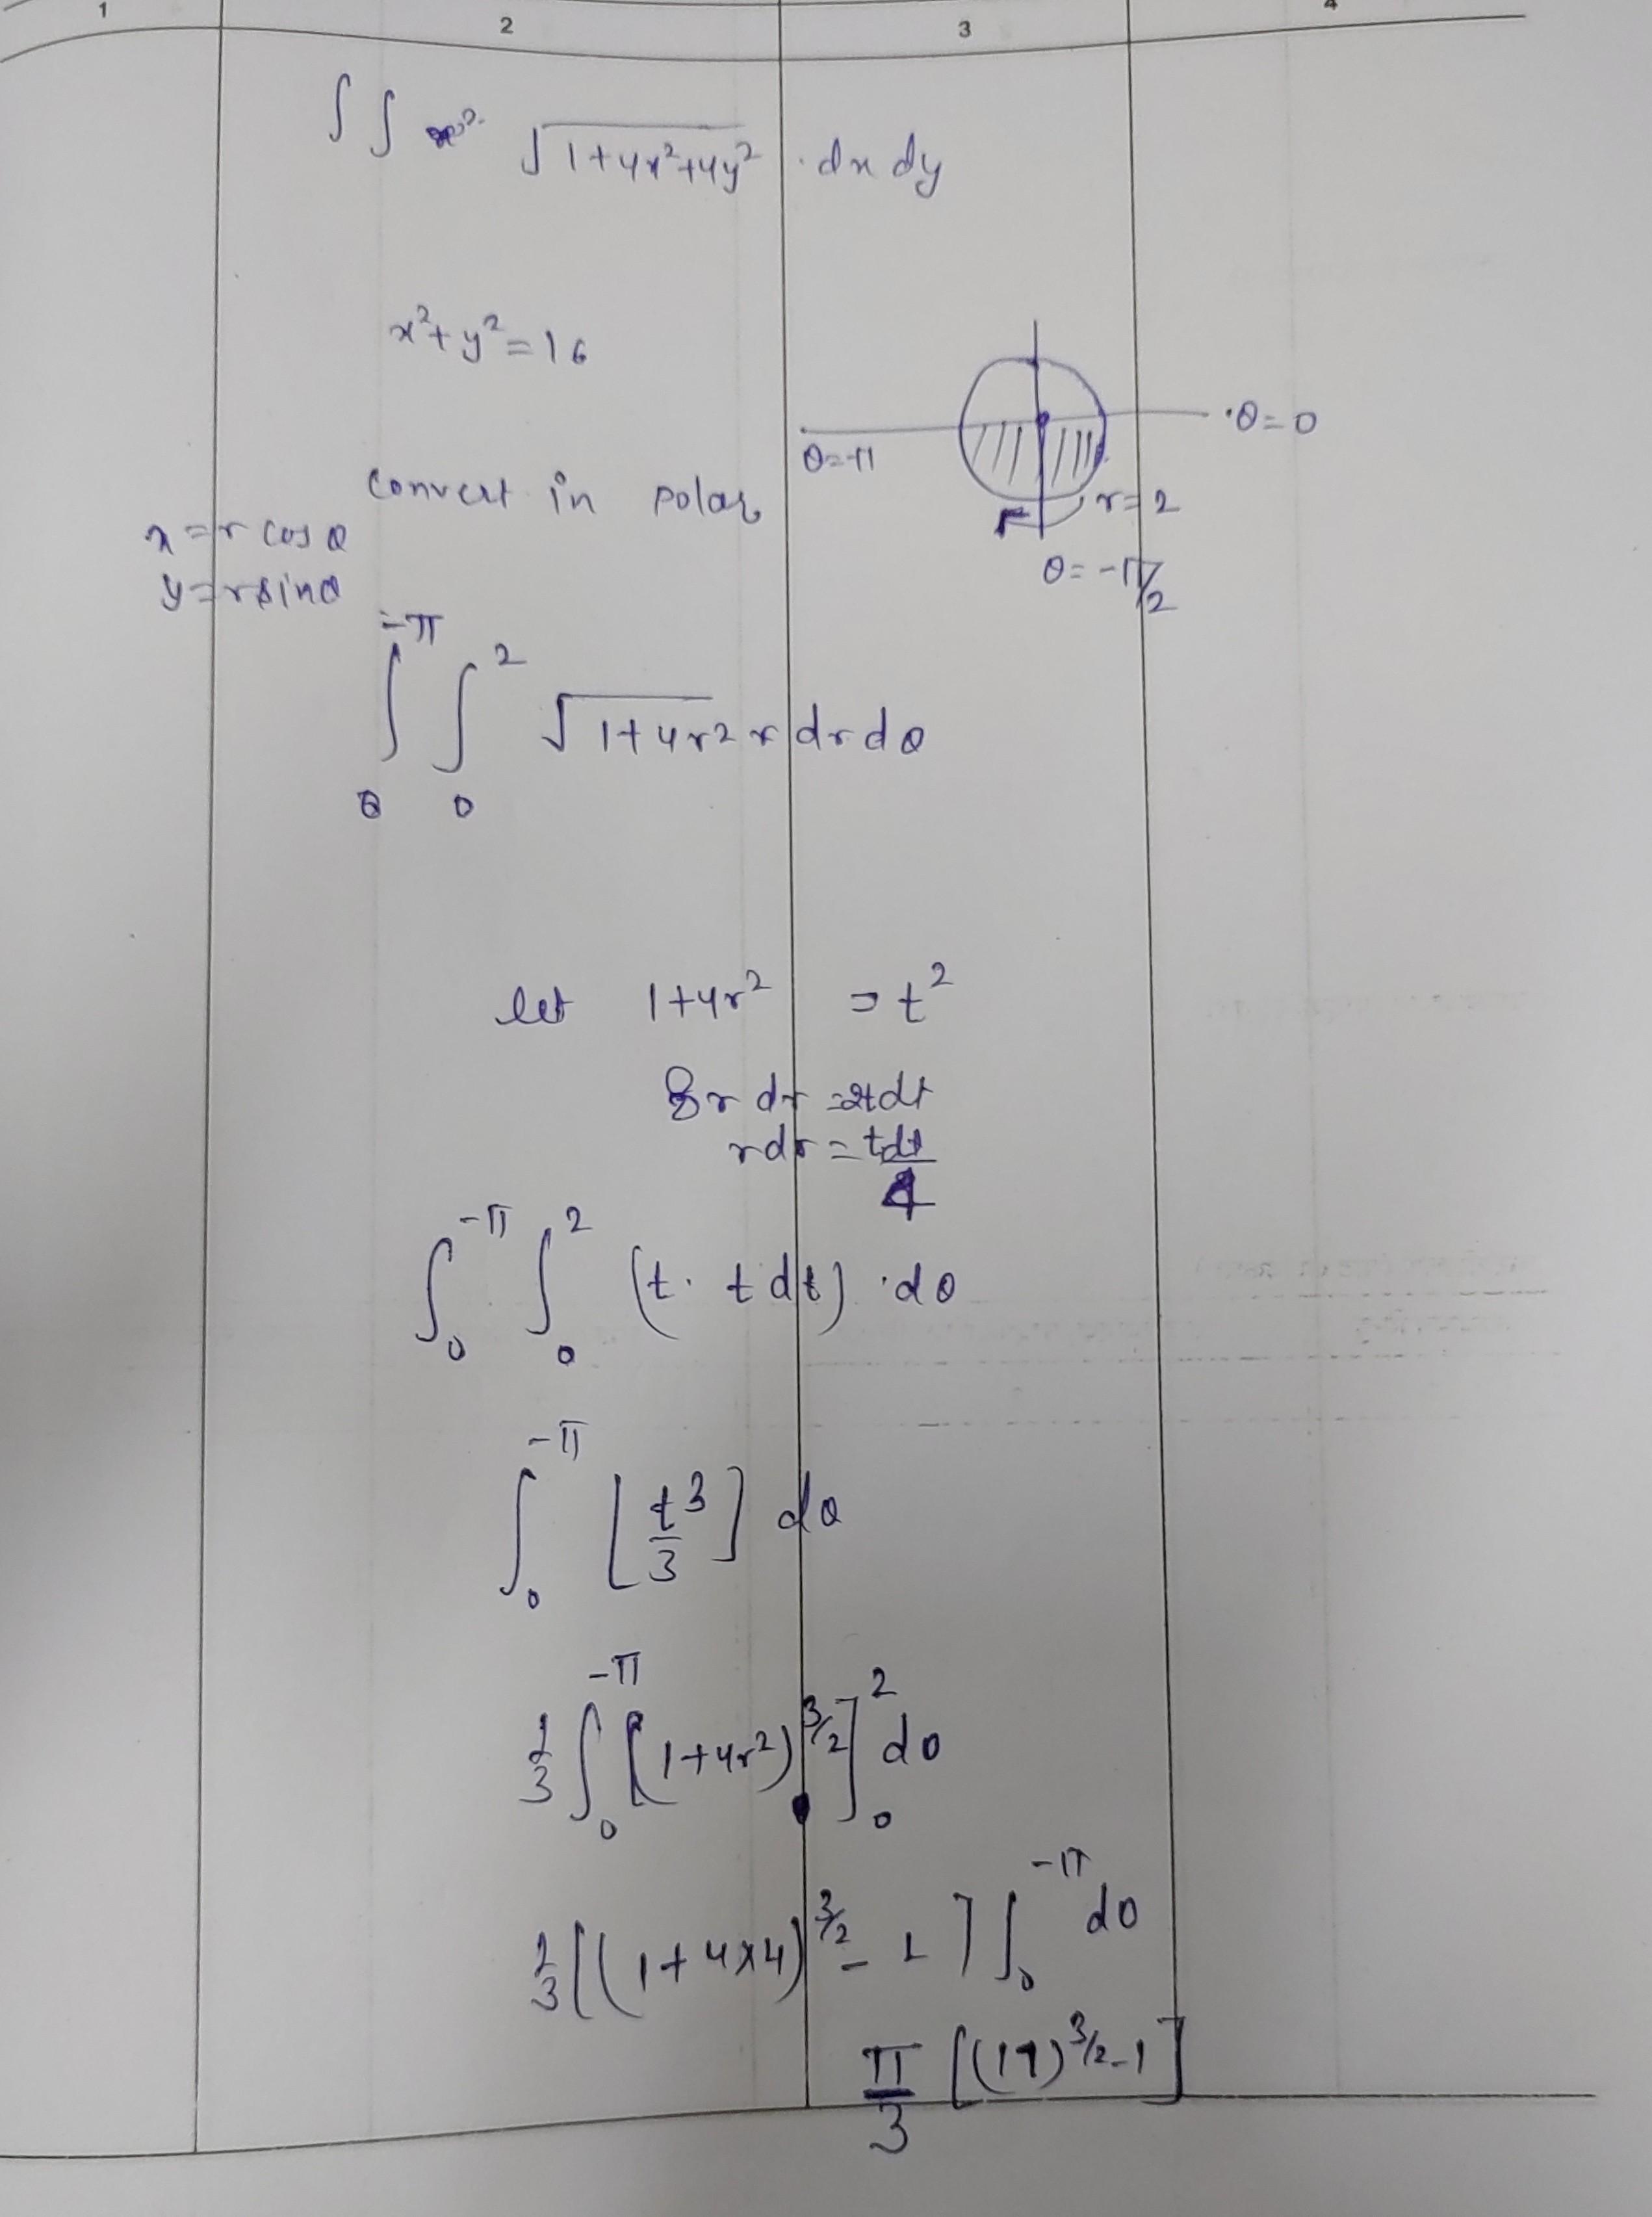 1 2 3 4
∫ ∫ √1+4x²+4y² . dx dy
x²+y²=16
θ=0
θ=-π
convert in polar
r=2
x=r cos θ
θ=-π/2
y=r sin θ
∫₀^-π ∫₀² √1+4r² r dr dθ
let 1+4r² = t²
8r dr = 2t dt
r dr = t dt/4
∫₀^-π ∫₀² (t. t dt) . dθ
∫₀^-π [t³/3] dθ
1/3 ∫₀^-π [(1+4r²)^3/2]₀² dθ
1/3 [(1+4x4)^3/2 - 1] ∫₀^-π dθ
π/3 [(17)^3/2 - 1]